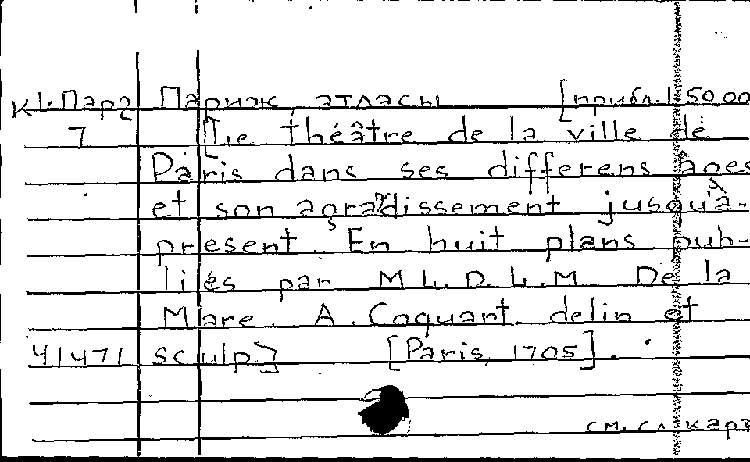 К1-Пар2 Париж, атласы [прибл.1:5000
7 [Le théâtre de la ville de
Paris dans ses differens âges
et son agradissement jusqu'à-
present. En huit plans pub-
liés par M L. D. L. M. De la
Mare. A. Coquant delin et
41471 sculp.] [Paris, 1705].
см. сл. карт